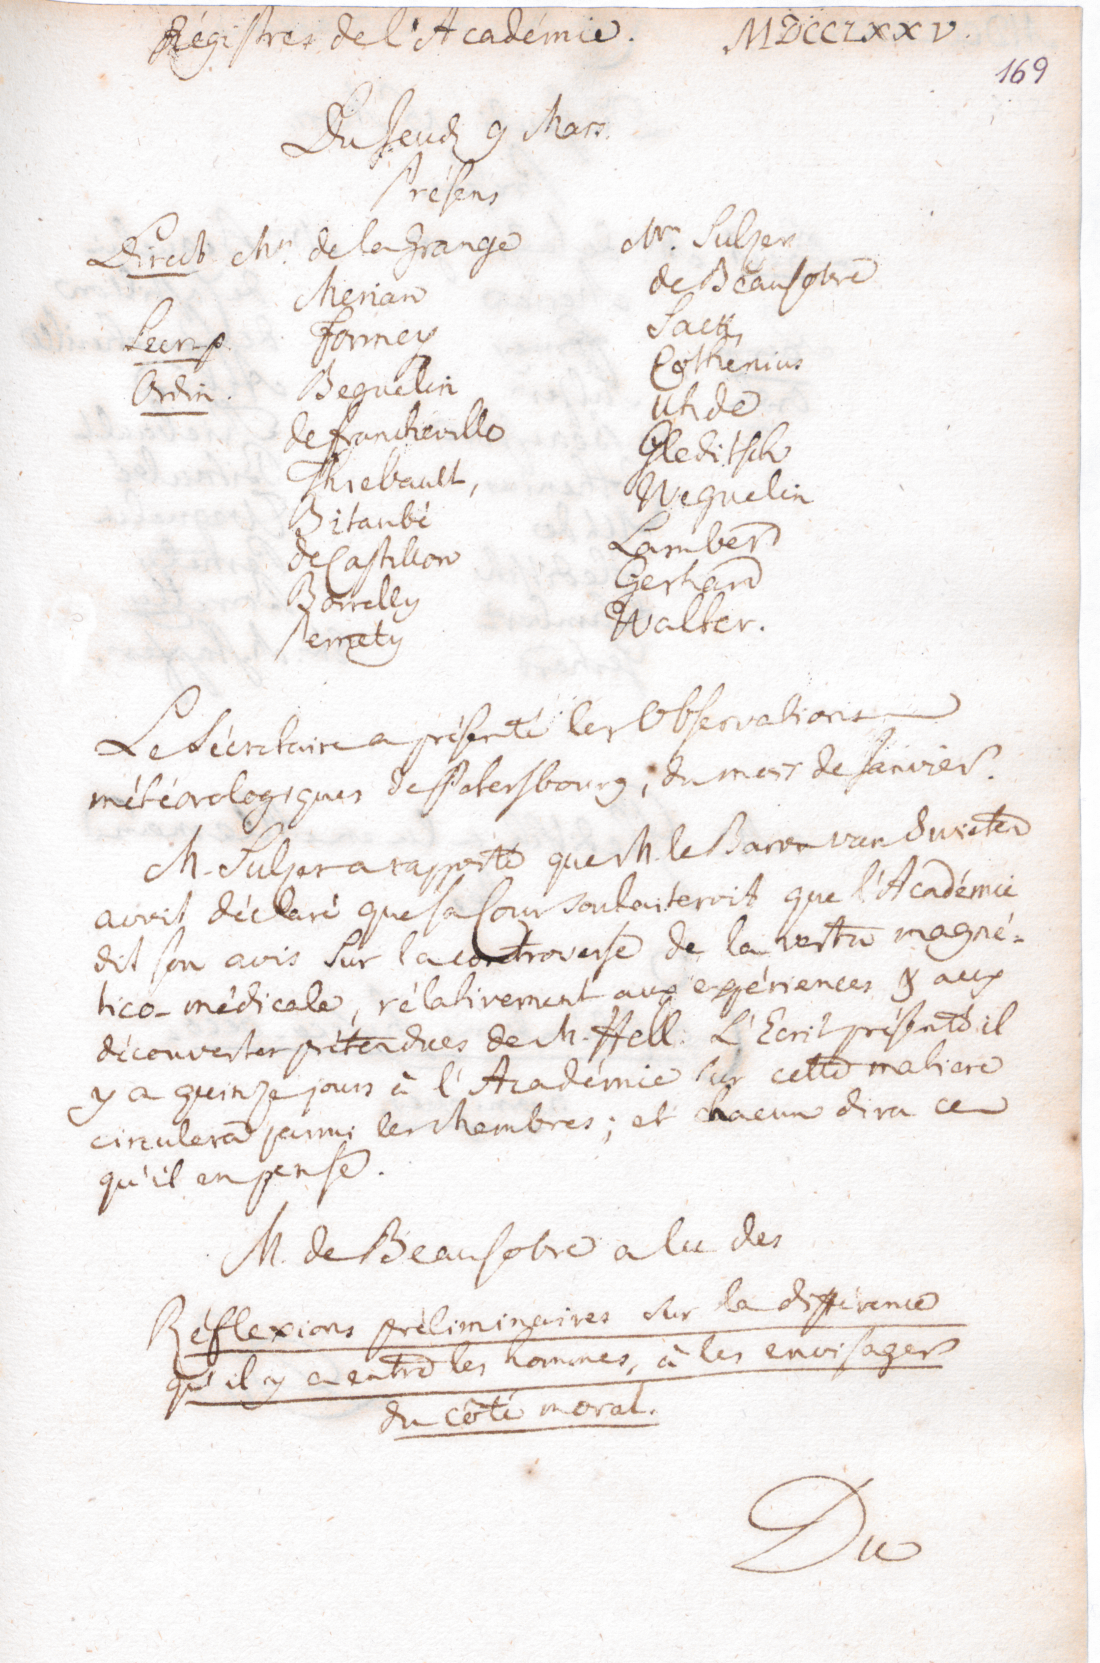 Régistres de l'Académie. MDCCLXXV.
169
Du Jeudi 9 Mars.
Présens
Direct. Mrs. de la Grange
Merian
Secr. p. Formey
Ordin. Beguelin
de Francheville
Thiebault,
Bitaubé
de Castillon
Borrelly
Pernety
Mrs. Sulzer
de Beausobre
Sack,
Cothenius
Uhde
Gleditsch
Weguelin
Lambert
Gerhard
Walter.
Le Sécretaire a présenté les Observations
météorologiques de Petersbourg, du mois de Janvier.
M. Sulzer a rapporté que M. le Baron van Swieten
avoit déclaré que sa Cour souhaiteroit que l'Académie
dit son avis sur la controverse de la vertu magné-
tico-médicale, rélativement aux expériences & aux
découvertes prétendues de M. Hell. L'Ecrit présenté il
y a quinze jours à l'Académie sur cette matiere
circulera parmi les Membres; et chacun dira ce
qu'il en pense.
M. de Beausobre a lu des
Réflexions préliminaires sur la différence
qu'il y a entre les hommes, à les envisager
du côté moral.
Du